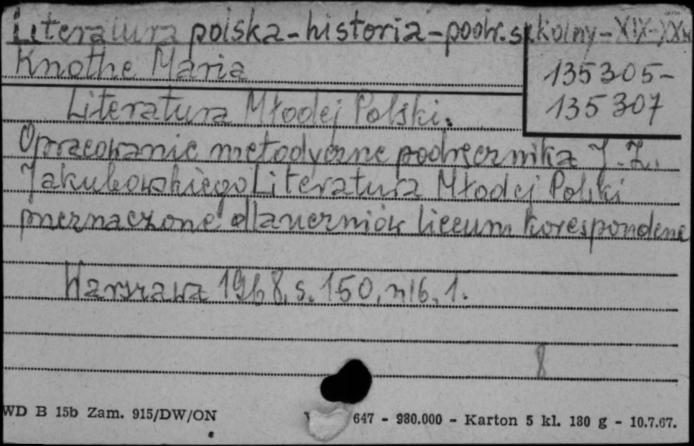 Literatura polska-historia-podr. szkolny-XIX-XXw
Knothe Maria
135305-
135307
Literatura Młodej Polski.
Opracowanie metodyczne podręcznika J. Z.
Jakubowskiego Literatura Młodej Polski
przeznaczone dla uczniów liceum korespondenc
Warszawa 1968, s. 150, nlb, 1.
8
WD B 15b Zam. 915/DW/ON 647 - 980.000 - Karton 5 kl. 180 g - 10.7.67.